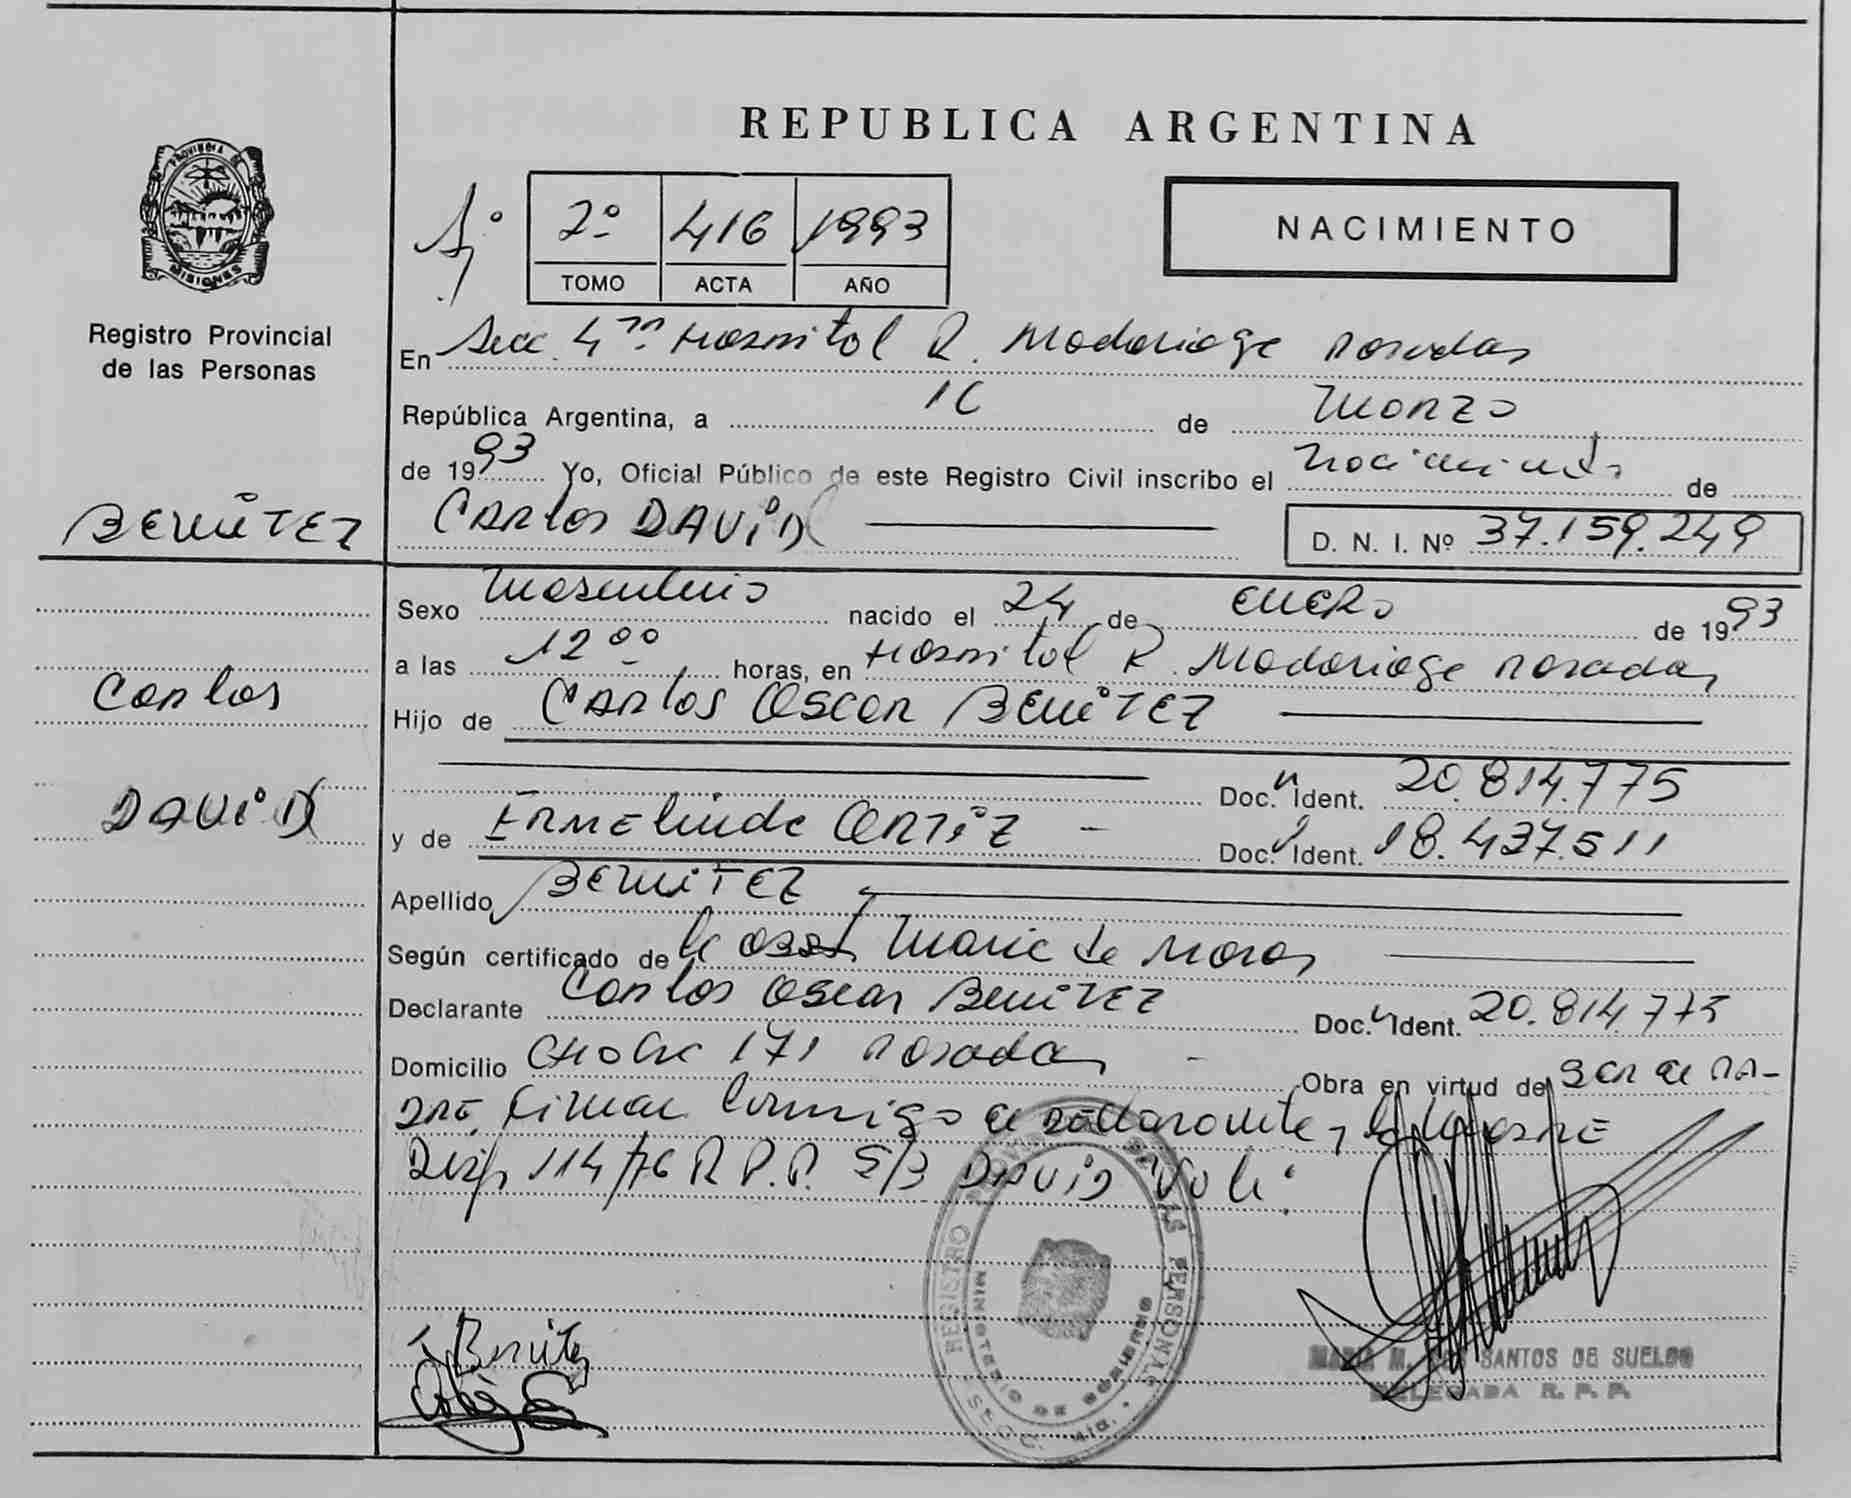 REPUBLICA ARGENTINA
PROVINCIA DE
MISIONES
Registro Provincial
de las Personas
2º 416 1993
TOMO ACTA AÑO
NACIMIENTO
En Secc. 4ta Hospital R. Madariaga Posadas
República Argentina, a 16 de Marzo
de 1993 Yo, Oficial Público de este Registro Civil inscribo el nacimiento de
Carlos DAVID
D. N. I. Nº 37.159.249
BENITEZ
Carlos
DAVID
Sexo Masculino nacido el 24 de enero de 1993
a las 12 00 horas, en Hospital R. Madariaga Posadas
Hijo de Carlos Oscar BENITEZ
Doc. Ident. 20.814.775
y de Ermelinda Ortiz - Doc. Ident. 18.437.511
Apellido BENITEZ
Según certificado de la Obst Maria de Moras
Declarante Carlos Oscar Benitez Doc. Ident. 20.814.775
Domicilio 171 Posadas - Obra en virtud de Ser el Pa-
dre, Firman Conmigo el declarante,
Disp 114/76 R.P.P. S/B DAVID Vale
Benitez
REGISTRO PROV. DE LAS PERSONAS
MINISTERIO DE GOBIERNO
MARIA M. SANTOS DE SUELDO
DELEGADA R. P. P.